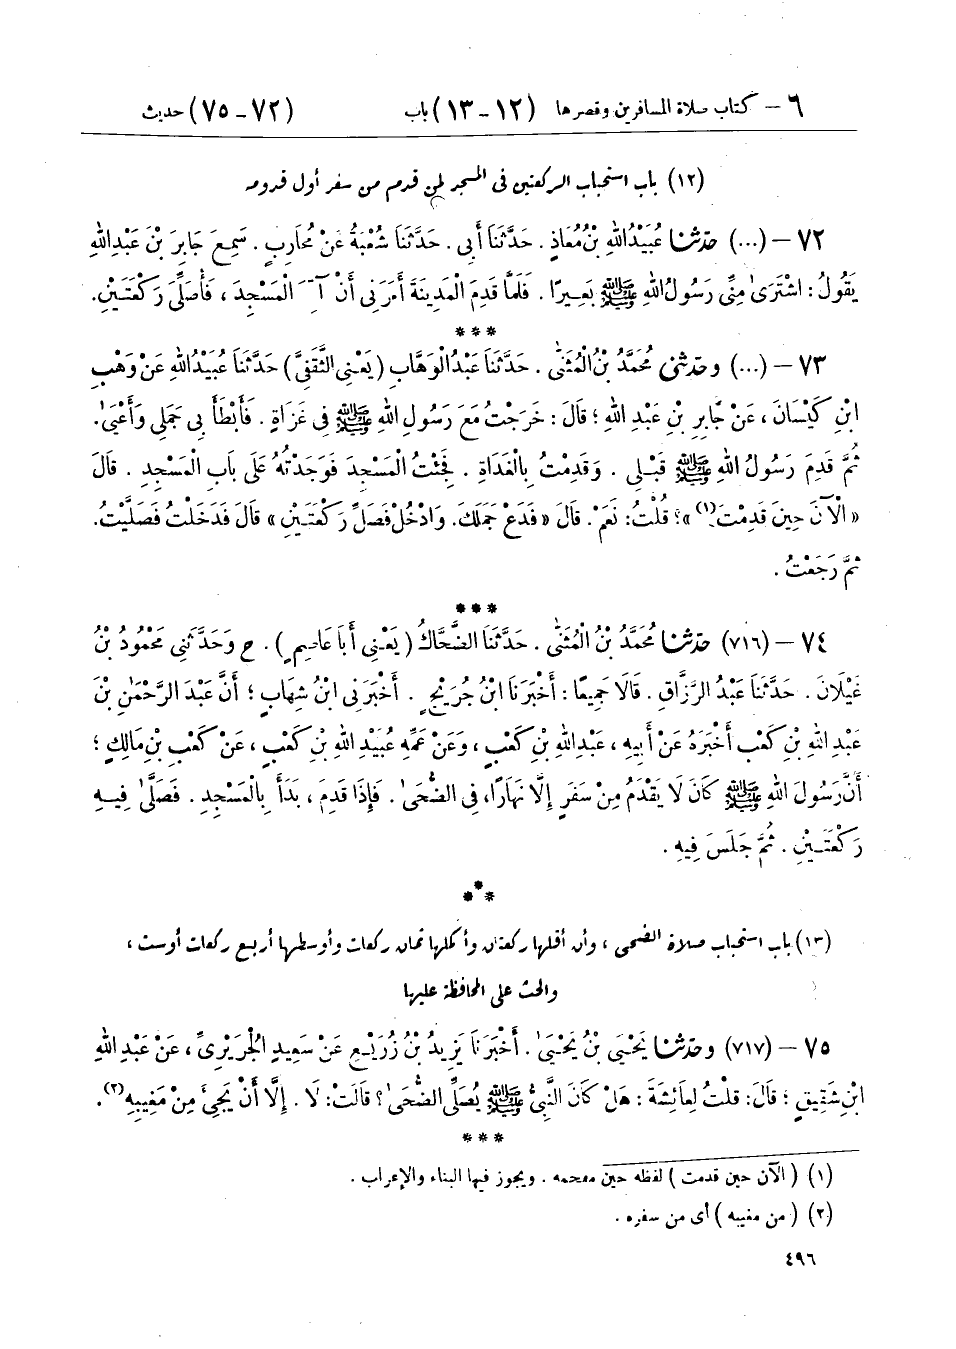 ٦ – كتاب صلاة المسافرين وقصرها (١٢ – ١٣) باب (٧٢ – ٧٥) حديث
(١٢) باب استحباب الركعتين فى المسجد لمن قدم من سفر أول قدومه
٧٢ – (...) حَدَّثَنَا عُبَيْدُ اللهِ بْنُ مُعَاذٍ. حَدَّثَنَا أَبِى. حَدَّثَنَا شُعْبَةُ عَنْ مُحَارِبٍ. سَمِعَ جَابِرَ بْنَ عَبْدِ اللهِ
يَقُولُ: اشْتَرَىٰ مِنِّى رَسُولُ اللهِ ﷺ بَعِيرًا. فَلَمَّا قَدِمَ الْمَدِينَةَ أَمَرَنِى أَنْ الْمَسْجِدَ، فَأُصَلِّىَ رَكْعَتَيْنِ.
***
٧٣ – (...) وحَدَّثَنِى مُحَمَّدُ بْنُ الْمُثَنَّىٰ. حَدَّثَنَا عَبْدُ الْوَهَّابِ (يَعْنِى الثَّقَفِىَّ) حَدَّثَنَا عُبَيْدُ اللهِ عَنْ وَهْبِ
ابْنِ كَيْسَانَ، عَنْ جَابِرِ بْنِ عَبْدِ اللهِ؛ قَالَ: خَرَجْتُ مَعَ رَسُولِ اللهِ ﷺ فِى غَزَاةٍ. فَأَبْطَأَ بِى جَمَلِى وَأَعْيَىٰ.
ثُمَّ قَدِمَ رَسُولُ اللهِ ﷺ قَبْلِى. وَقَدِمْتُ بِالْغَدَاةِ. فَجِئْتُ الْمَسْجِدَ فَوَجَدْتُهُ عَلَى بَابِ الْمَسْجِدِ. قَالَ
«الْآنَ حِينَ قَدِمْتَ(١)»؟ قُلْتُ: نَعَمْ. قَالَ «فَدَعْ جَمَلَكَ. وَادْخُلْ فَصَلِّ رَكْعَتَيْنِ» قَالَ فَدَخَلْتُ فَصَلَّيْتُ.
ثُمَّ رَجَعْتُ.
***
٧٤ – (٧١٦) حَدَّثَنَا مُحَمَّدُ بْنُ الْمُثَنَّىٰ. حَدَّثَنَا الضَّحَّاكُ (يَعْنِى أَبَا عَاصِمٍ). ح وَحَدَّثَنِى مَحْمُودُ بْنُ
غَيْلَانَ. حَدَّثَنَا عَبْدُ الرَّزَّاقِ. قَالَا جَمِيعًا: أَخْبَرَنَا ابْنُ جُرَيْجٍ. أَخْبَرَنِى ابْنُ شِهَابٍ؛ أَنَّ عَبْدَ الرَّحْمَٰنِ بْنَ
عَبْدِ اللهِ بْنِ كَعْبٍ أَخْبَرَهُ عَنْ أَبِيهِ، عَبْدِ اللهِ بْنِ كَعْبٍ، وَعَنْ عَمِّهِ عُبَيْدِ اللهِ بْنِ كَعْبٍ، عَنْ كَعْبِ بْنِ مَالِكٍ؛
أَنَّ رَسُولَ اللهِ ﷺ كَانَ لَا يَقْدَمُ مِنْ سَفَرٍ إِلَّا نَهَارًا، فِى الضُّحَىٰ. فَإِذَا قَدِمَ، بَدَأَ بِالْمَسْجِدِ. فَصَلَّىٰ فِيهِ
رَكْعَتَيْنِ. ثُمَّ جَلَسَ فِيهِ.
***
(١٣) باب استحباب صلاة الضحى، وأن أقلها ركعتان وأكملها ثمان ركعات وأوسطها أربع ركعات أو ست،
والحث على المحافظة عليها
٧٥ – (٧١٧) وحَدَّثَنَا يَحْيَى بْنُ يَحْيَىٰ. أَخْبَرَنَا يَزِيدُ بْنُ زُرَيْعٍ عَنْ سَعِيدٍ الْجُرَيْرِىِّ، عَنْ عَبْدِ اللهِ
ابْنِ شَقِيقٍ؛ قَالَ: قُلْتُ لِعَائِشَةَ: هَلْ كَانَ النَّبِىُّ ﷺ يُصَلِّى الضُّحَىٰ؟ قَالَتْ: لَا. إِلَّا أَنْ يَجِىءَ مِنْ مَغِيبِهِ(٢).
***
(١) (الآن حين قدمت) لفظه حين مقحمه. ويجوز فيها البناء والإعراب.
(٢) (من مغيبه) أى من سفره.
٤٩٦